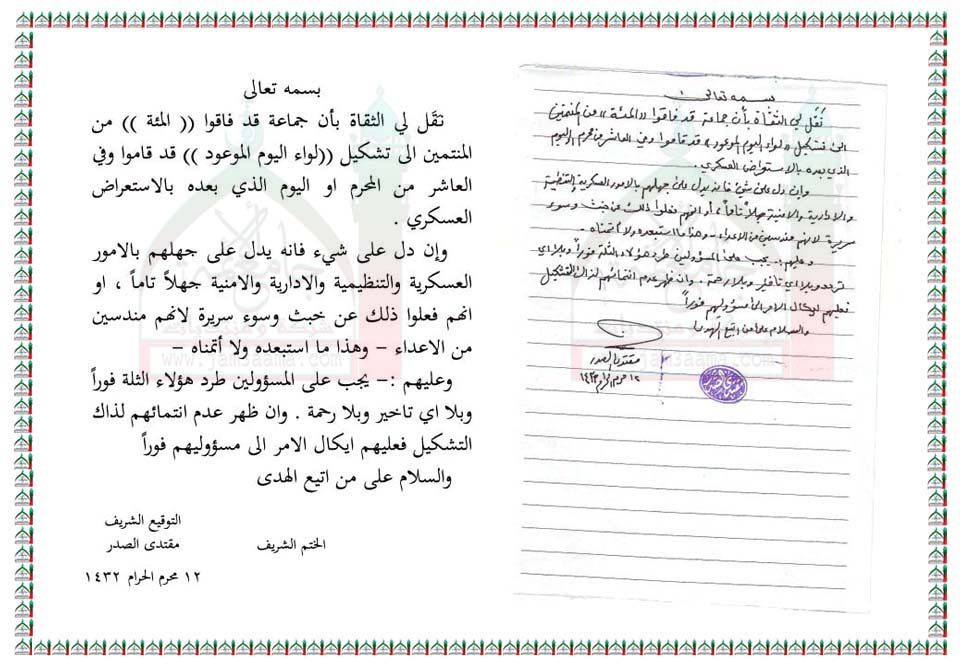 بسمه تعالى
نقل لي الثقاة بأن جماعة قد فاقوا (( المئة )) من
المنتمين الى تشكيل ((لواء اليوم الموعود )) قد قاموا وفي
العاشر من المحرم او اليوم الذي بعده بالاستعراض
العسكري .
وإن دل على شيء فانه يدل على جهلهم بالامور
العسكرية والتنظيمية والادارية والامنية جهلاً تاماً ، او
انهم فعلوا ذلك عن خبث وسوء سريرة لانهم مندسين
من الاعداء – وهذا ما استبعده ولا أتمناه –
وعليهم :– يجب على المسؤولين طرد هؤلاء الثلة فوراً
وبلا اي تاخير وبلا رحمة . وان ظهر عدم انتمائهم لذاك
التشكيل فعليهم ايكال الامر الى مسؤوليهم فوراً
والسلام على من اتبع الهدى
التوقيع الشريف
الختم الشريف مقتدى الصدر
١٢ محرم الحرام ١٤٣٢
www.jam3aama.com
بسمه تعالى
نُقل لي الثقاة بأن جماعة قد فاقوا ((المئة)) من المنتمين
الى تشكيل ((لواء اليوم الموعود)) قد قاموا وفي العاشر من محرم او اليوم
الذي بعده بالاستعراض العسكري .
وإن دل على شيء فانه يدل على جهلهم بالامور العسكرية والتنظيمية
والادارية والامنية جهلاً تاماً ، أو انهم فعلوا ذلك عن خبث وسوء
سريرة لانهم مندسين من الاعداء – وهذا ما استبعده ولا أتمناه –
وعليهم :– يجب على المسؤولين طرد هؤلاء الثلة فوراً وبلا اي
تردد وبلا اي تأخير وبلا رحمة . وان ظهر عدم انتمائهم لذاك التشكيل
فعليهم ايكال الامر الى مسؤوليهم فوراً
والسلام على من اتبع الهدى
مقتدى الصدر
١٢ محرم الحرام ١٤٣٢